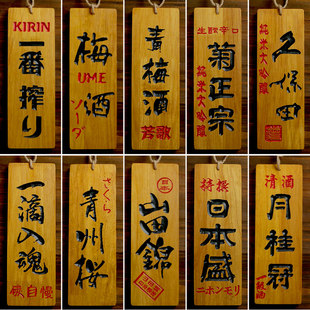 KIRIN
一番搾り
梅酒
UME
ソーダ
青梅酒
芳歌
生酛辛口
菊正宗
純米大吟醸
久保田
純米大吟醸
一滴入魂
自慢
さくら
青州桜
日本
山田錦
特撰
日本盛
ニホンモリ
清酒
月桂冠